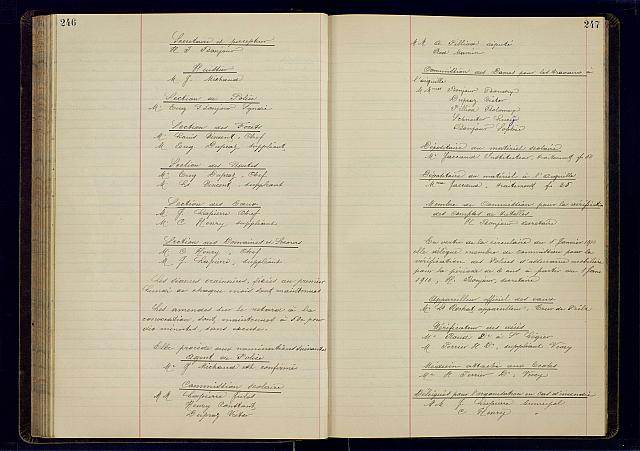 246
Secrétaire et percepteur
Huissier
M. J. Michaud
Section de Police
M. Eug. Bonjour, Syndic
Section des Forêts
M. Louis Vincent, Chef
M. Eug. Dupraz, suppléant
Section des Routes
M. Eug. Dupraz, Chef
M. Ls Vincent, suppléant
Section des Eaux
M. J. Lapierre Chef
M. C. Henry, suppléant
Section des Domaines et Secours
M. C. Henry, Chef
M. J. Lapierre, suppléant
Les séances ordinaires, fixées au premier
lundi de chaque mois sont maintenues
Les amendes sur le retard à la
convocation, sont maintenues à
des minutes, sans excuse.
Elle procède aux nominations suivantes
Agent de Police
M. J. Michaud est confirmé
Commission scolaire
MM. Lapierre Jules
Henry Constant
Dupraz Victor
247
MM. de Pilliod député
Commission des Dames pour les travaux à
l'aiguille
M Mmes Bonjour
Dupraz Victor
Pilliod
Schneider
Bonjour Sophie
Dépositaire du matériel scolaire
M. Jaccaud Instituteur, traitement fr. 50
Dépositaire du matériel à l'aiguille
Mme Jaccaud, traitement fr. 25
Membre de Commission pour la vérification
des Comptes de tutelles
H. Bonjour secrétaire
En vertu de la circulaire du 1 Janvier 1910
elle délègue membre de commission pour la
vérification des Polices d'assurance mobilière
pour la période de 4 ans à partir du 1 Janv
1910, H. Bonjour, secrétaire
Appareilleur officiel des eaux
M. Ls Rochat appareilleur, Tour de Peilz
Vérificateur des décès
M. Perrier H. Dr, suppléant Vevey
Médecin attaché aux Ecoles
M. H. Perrier Dr, Vevey
Délégués pour l'organisation en cas d'incendie
MM. J. Lapierre municipal
C. Henry "